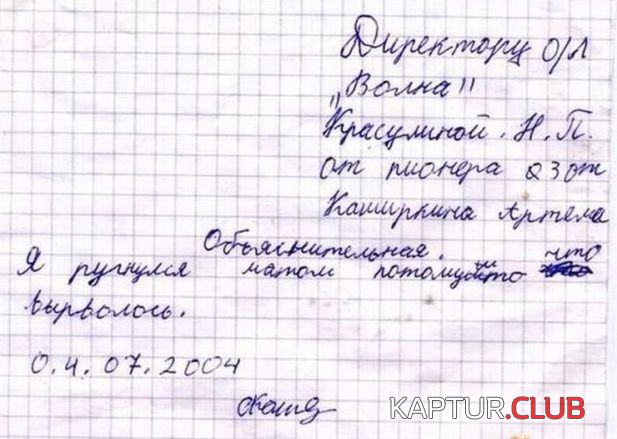 Директору О/Л
„Волна"
Красулиной. Н. П.
от пионера 23 от
Каширкина Артёма
Объяснительная.
Я ругнулся матом потому что
вырволось.
04.07.2004
KAPTUR.CLUB